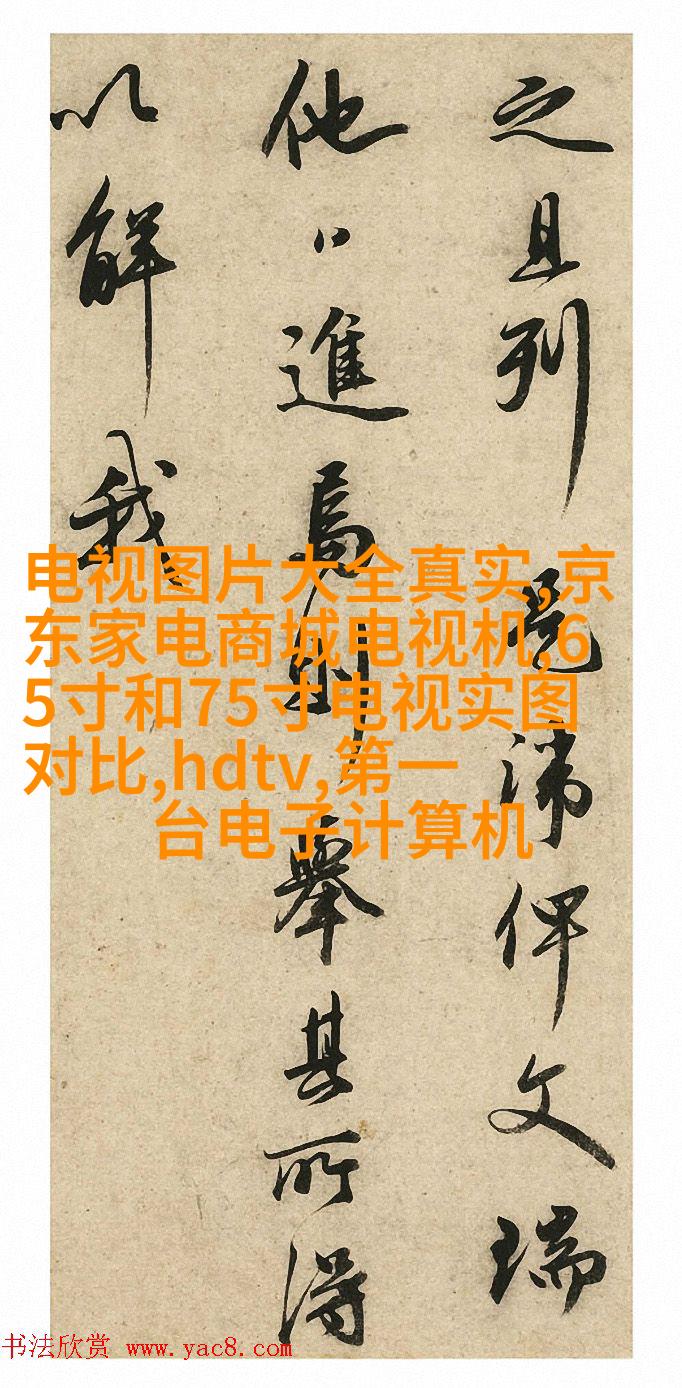 之且列俾文瑞
他日進焉則舉其所得
以解我
电视图片大全真实,京
东家电商城电视机,6
5寸和75寸电视实图
对比,hdtv,第一
台电子计算机
书法欣赏 www.yac8.com